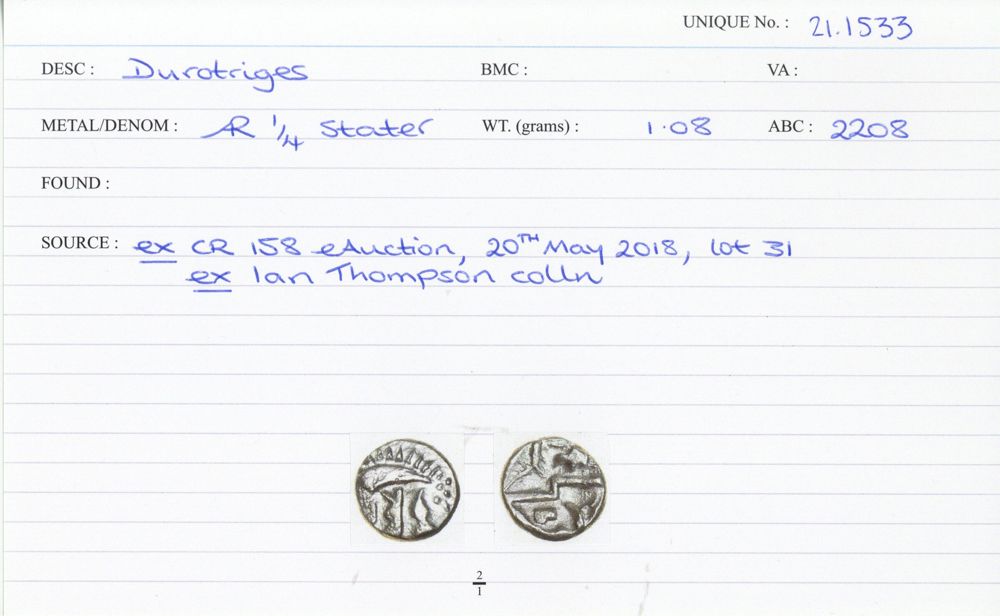 UNIQUE No. : 21.1533
DESC : Durotriges BMC : VA :
METAL/DENOM : AR 1/4 Stater WT. (grams) : 1.08 ABC : 2208
FOUND :
SOURCE : ex CR 158 eAuction, 20TH May 2018, lot 31
ex Ian Thompson colln
2
1